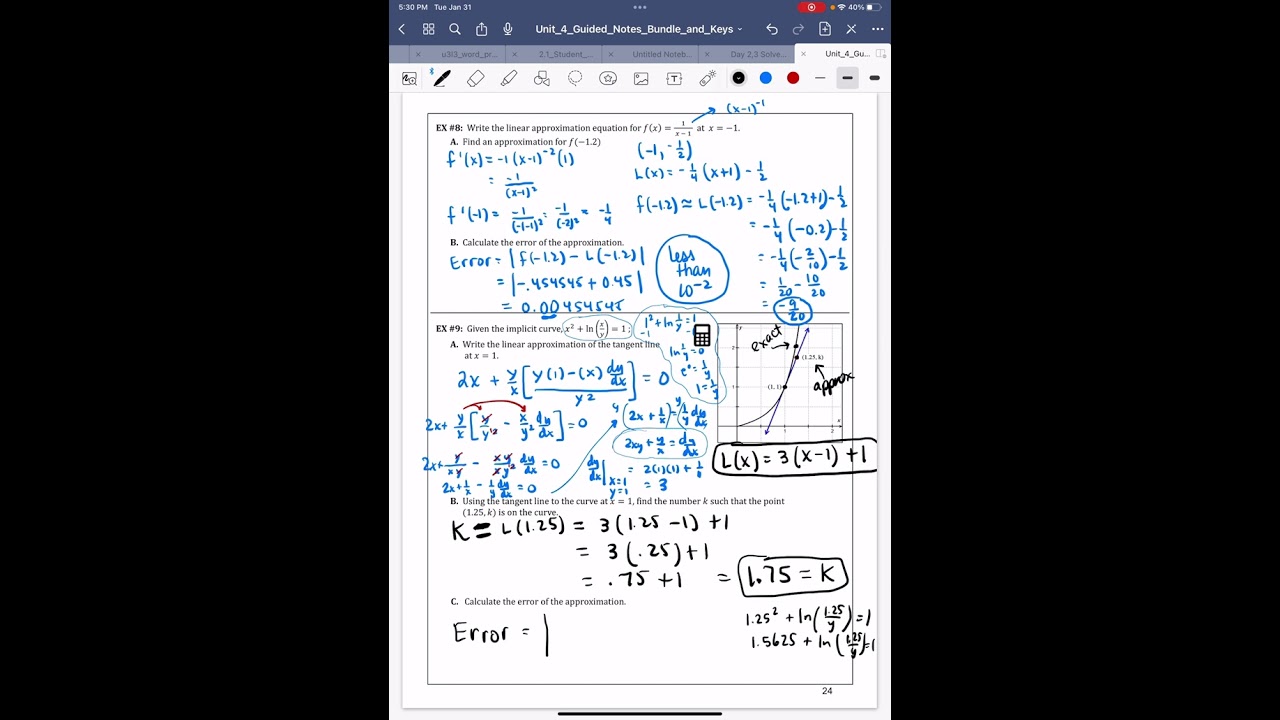 5:30 PM Tue Jan 31
40%
Unit_4_Guided_Notes_Bundle_and_Keys
u3l3_word_pr...
2.1_Student_...
Untitled Noteb...
Day 2,3 Solve...
Unit_4_Gu...
(x-1)⁻¹
EX #8: Write the linear approximation equation for f(x) = 1/(x − 1) at x = −1.
A. Find an approximation for f(−1.2)
f'(x) = -1(x-1)⁻²(1)
= -1/(x-1)²
f'(-1) = -1/(-1-1)² = -1/(-2)² = -1/4
(-1, -1/2)
L(x) = -1/4 (x+1) - 1/2
f(-1.2) ≈ L(-1.2) = -1/4(-1.2+1) - 1/2
= -1/4(-0.2) - 1/2
= -1/4(-2/10) - 1/2
= 1/20 - 10/20
= -9/20
B. Calculate the error of the approximation.
Error = |f(-1.2) - L(-1.2)|
= |-.454545 + 0.45|
= 0.00454545
less
than
10⁻²
EX #9: Given the implicit curve, x² + ln(x/y) = 1;
A. Write the linear approximation of the tangent line
at x = 1.
1² + ln 1/y = 1
-1 -1
ln 1/y = 0
e⁰ = 1/y
1 = 1/y
2x + y/x [(y(1) - (x) dy/dx)/y²] = 0
2x + y/x [y/y² - x/y² dy/dx] = 0
2x + y/xy - xy/xy² dy/dx = 0
2x + 1/x - 1/y dy/dx = 0
y(2x + 1/x) = (1/y dy/dx)y
2xy + y/x = dy/dx
dy/dx | x=1 y=1 = 2(1)(1) + 1/1
= 3
y
2
1
exact
(1.25, k)
approx
(1, 1)
1
2
x
L(x) = 3(x-1) + 1
B. Using the tangent line to the curve at x = 1, find the number k such that the point
(1.25, k) is on the curve.
K = L(1.25) = 3(1.25 - 1) + 1
= 3(.25) + 1
= .75 + 1 = 1.75 = K
C. Calculate the error of the approximation.
Error = |
1.25² + ln(1.25/y) = 1
1.5625 + ln(1.25/y) = 1
24